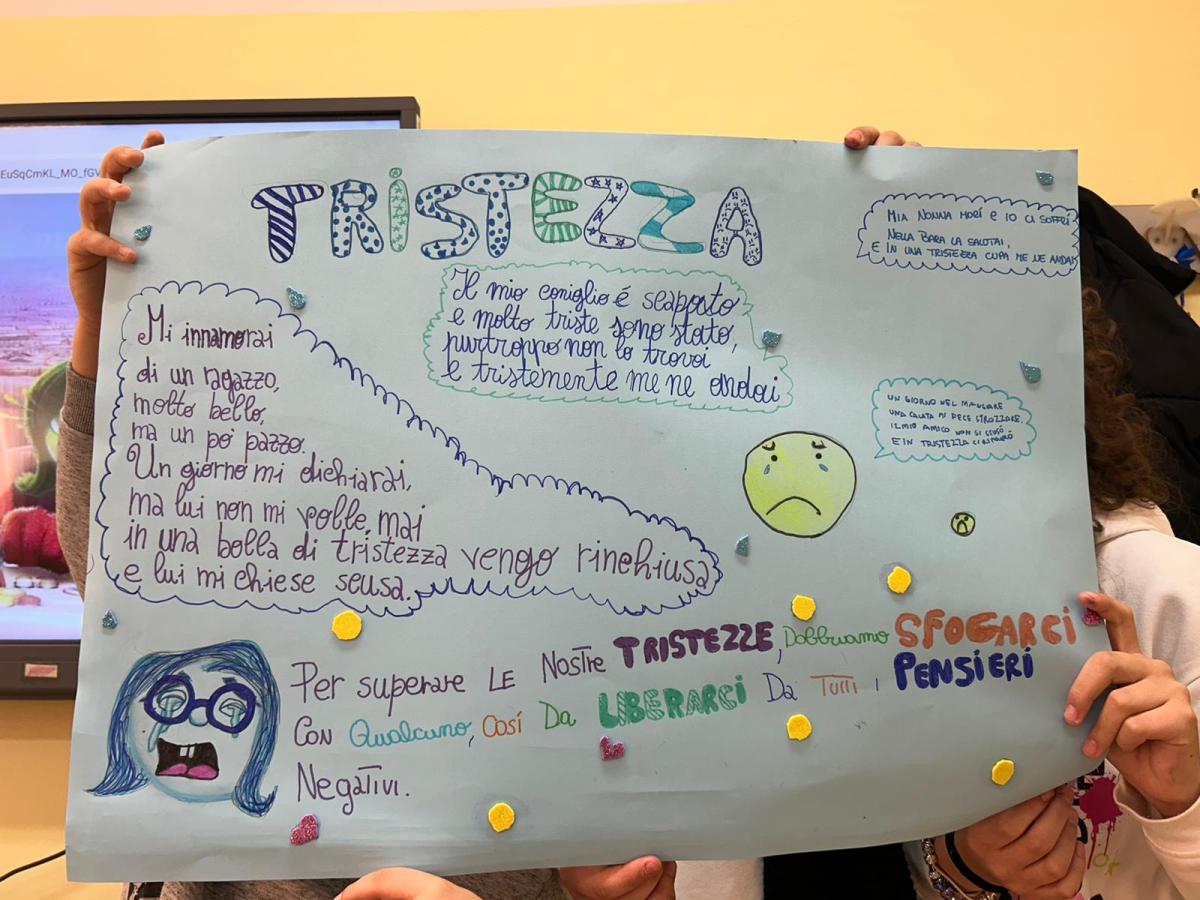 EuSqCmKL_MO_fGV
TRISTEZZA
MIA NONNA MORÌ E IO CI SOFFRÌ
NELLA BARA LA SALUTAI,
E IN UNA TRISTEZZA CUPA ME NE ANDAI
Il mio coniglio é scappato
e molto triste sono stato,
purtroppo non lo trovai
e tristemente me ne andai
Mi innamorai
di un ragazzo,
molto bello,
ma un pò pazzo.
Un giorno mi dichiarai,
ma lui non mi volle mai
in una bolla di tristezza vengo rinchiusa
e lui mi chiese scusa.
UN GIORNO NEL MANGIARE
UNA MI FECE STROZZARE,
IL MIO AMICO NON SI SCUSÒ
E IN TRISTEZZA CI
Per superare LE NosTre TRISTEZZE, Dobbiamo SFOGARCI
Con Qualcuno, Così Da LIBERARCI Da TuTTi i PENSIERI
NegaTivi.